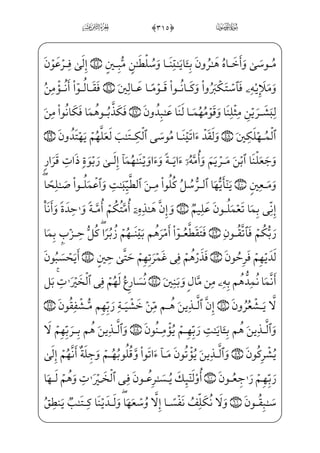 سورة المؤمنون ﴿٣١٥﴾ الجزء الثامن عشر
مُوسَىٰ وَأَخَاهُ هَـٰرُونَ بِـَٔايَـٰتِنَا وَسُلْطَـٰنٍ مُّبِينٍ ۝ إِلَىٰ فِرْعَوْنَ
وَمَلَإِيهِۦ فَٱسْتَكْبَرُوا۟ وَكَانُوا۟ قَوْمًا عَالِينَ ۝ فَقَالُوٓا۟ أَنُؤْمِنُ
لِبَشَرَيْنِ مِثْلِنَا وَقَوْمُهُمَا لَنَا عَـٰبِدُونَ ۝ فَكَذَّبُوهُمَا فَكَانُوا۟ مِنَ
ٱلْمُهْلَكِينَ ۝ وَلَقَدْ ءَاتَيْنَا مُوسَى ٱلْكِتَـٰبَ لَعَلَّهُمْ يَهْتَدُونَ ۝
وَجَعَلْنَا ٱبْنَ مَرْيَمَ وَأُمَّهُۥٓ ءَايَةً وَءَاوَيْنَـٰهُمَآ إِلَىٰ رَبْوَةٍ ذَاتِ قَرَارٍ
وَمَعِينٍ ۝ يَـٰٓأَيُّهَا ٱلرُّسُلُ كُلُوا۟ مِنَ ٱلطَّيِّبَـٰتِ وَٱعْمَلُوا۟ صَـٰلِحًا ۖ
إِنِّى بِمَا تَعْمَلُونَ عَلِيمٌ ۝ وَإِنَّ هَـٰذِهِۦٓ أُمَّتُكُمْ أُمَّةً وَٰحِدَةً وَأَنَا۠
رَبُّكُمْ فَٱتَّقُونِ ۝ فَتَقَطَّعُوٓا۟ أَمْرَهُم بَيْنَهُمْ زُبُرًا ۖ كُلُّ حِزْبٍۭ بِمَا
لَدَيْهِمْ فَرِحُونَ ۝ فَذَرْهُمْ فِى غَمْرَتِهِمْ حَتَّىٰ حِينٍ ۝ أَيَحْسَبُونَ
أَنَّمَا نُمِدُّهُم بِهِۦ مِن مَّالٍ وَبَنِينَ ۝ نُسَارِعُ لَهُمْ فِى ٱلْخَيْرَٰتِ ۚ بَل
لَّا يَشْعُرُونَ ۝ إِنَّ ٱلَّذِينَ هُم مِّنْ خَشْيَةِ رَبِّهِم مُّشْفِقُونَ ۝
وَٱلَّذِينَ هُم بِـَٔايَـٰتِ رَبِّهِمْ يُؤْمِنُونَ ۝ وَٱلَّذِينَ هُم بِرَبِّهِمْ لَا
يُشْرِكُونَ ۝ وَٱلَّذِينَ يُؤْتُونَ مَآ ءَاتَوا۟ وَّقُلُوبُهُمْ وَجِلَةٌ أَنَّهُمْ إِلَىٰ
رَبِّهِمْ رَٰجِعُونَ ۝ أُو۟لَـٰٓئِكَ يُسَـٰرِعُونَ فِى ٱلْخَيْرَٰتِ وَهُمْ لَهَا
سَـٰبِقُونَ ۝ وَلَا نُكَلِّفُ نَفْسًا إِلَّا وُسْعَهَا ۖ وَلَدَيْنَا كِتَـٰبٌ يَنطِقُ